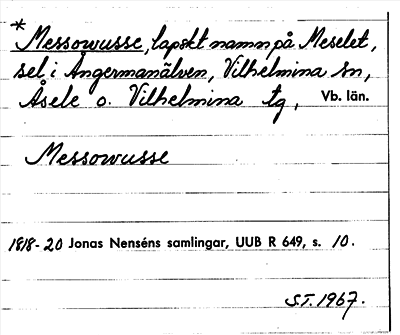 * Messowusse, lapskt namn på Meselet,
sel i Ångermanälven, Vilhelmina sn,
Åsele o. Vilhelmina tg, Vb. län.
Messowusse
1818-20 Jonas Nenséns samlingar, UUB R 649, s. 10.
S.T. 1967.